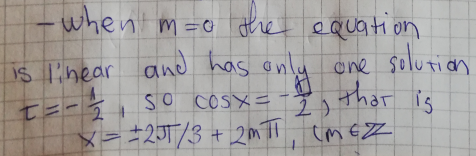 - when m=0 the equation
is linear and has only one solution
t = -1/2, so cos x = -1/2, that is
x = ±2π/3 + 2mπ, (m∈ℤ